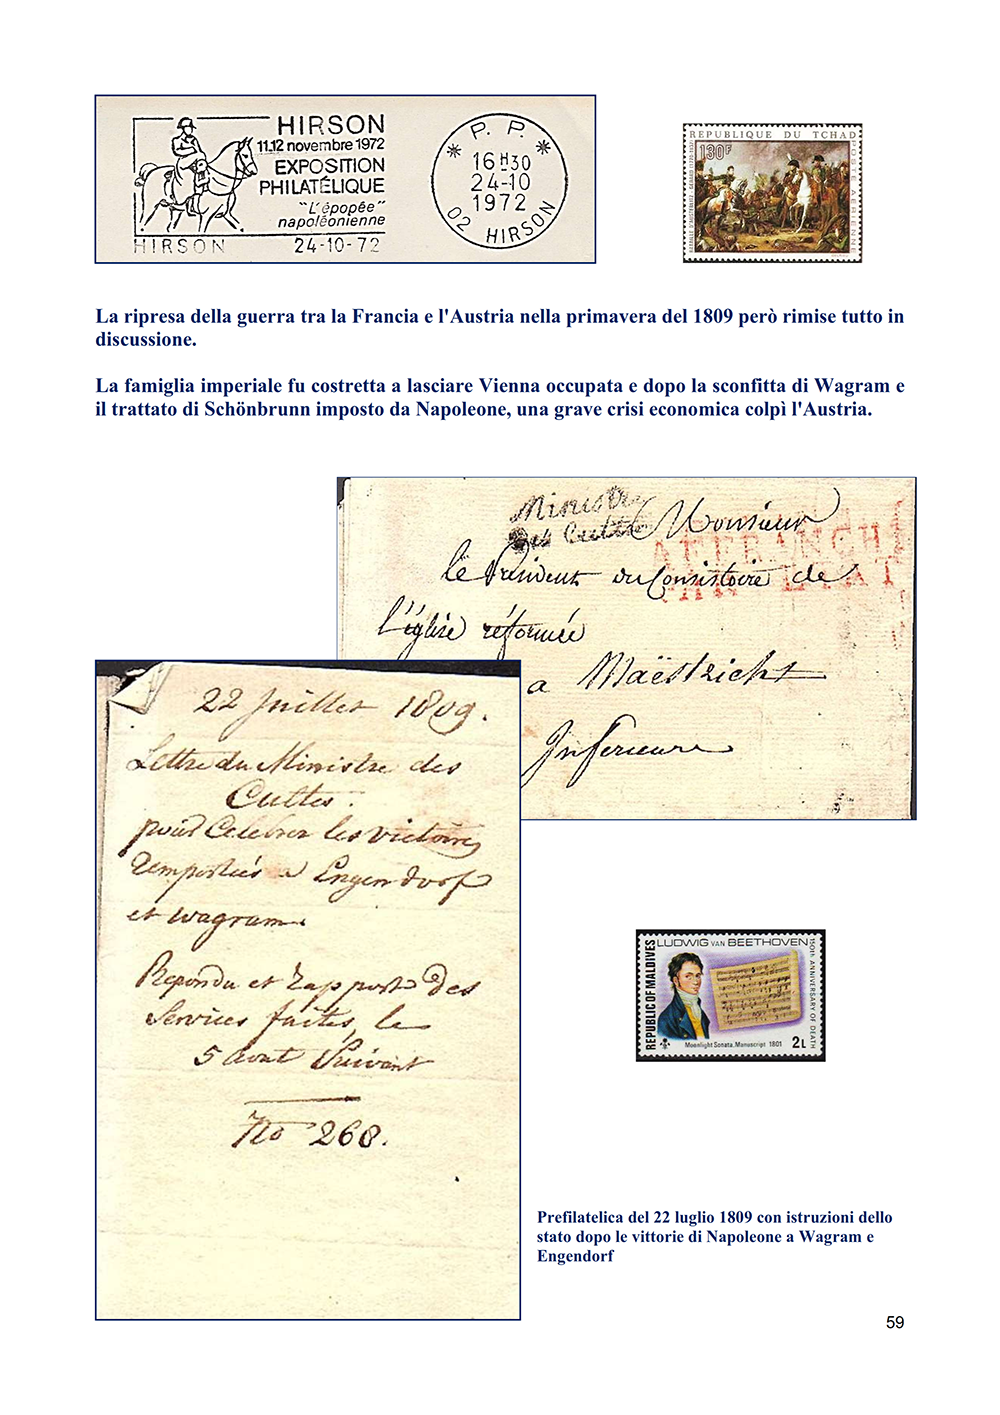 HIRSON
11.12 novembre 1972
EXPOSITION
PHILATÉLIQUE
"L'épopée"
napoléonienne
HIRSON 24-10-72
P. P.
16H30
24-10
1972
02 HIRSON
REPUBLIQUE DU TCHAD
130F
POSTE AERIENNE
La ripresa della guerra tra la Francia e l'Austria nella primavera del 1809 però rimise tutto in
discussione.
La famiglia imperiale fu costretta a lasciare Vienna occupata e dopo la sconfitta di Wagram e
il trattato di Schönbrunn imposto da Napoleone, una grave crisi economica colpì l'Austria.
Ministre
des Cultes
Monsieur
AFFRANCHI
PAR ETAT
le Président du Consistoire de
l'église réformée
a Maëstricht
Inferieure
22 Juillet 1809.
Lettre du Ministre des
Cultes.
pour Celebrer les victoires
remportées a Engendorf
et Wagram.
Repondu et rapporté des
Services faites, le
5 Aout Suivant
No 268.
LUDWIG VAN BEETHOVEN
REPUBLIC OF MALDIVES
150th ANNIVERSARY OF DEATH
Moonlight Sonata. Manuscript 1801
2L
Prefilatelica del 22 luglio 1809 con istruzioni dello
stato dopo le vittorie di Napoleone a Wagram e
Engendorf
59